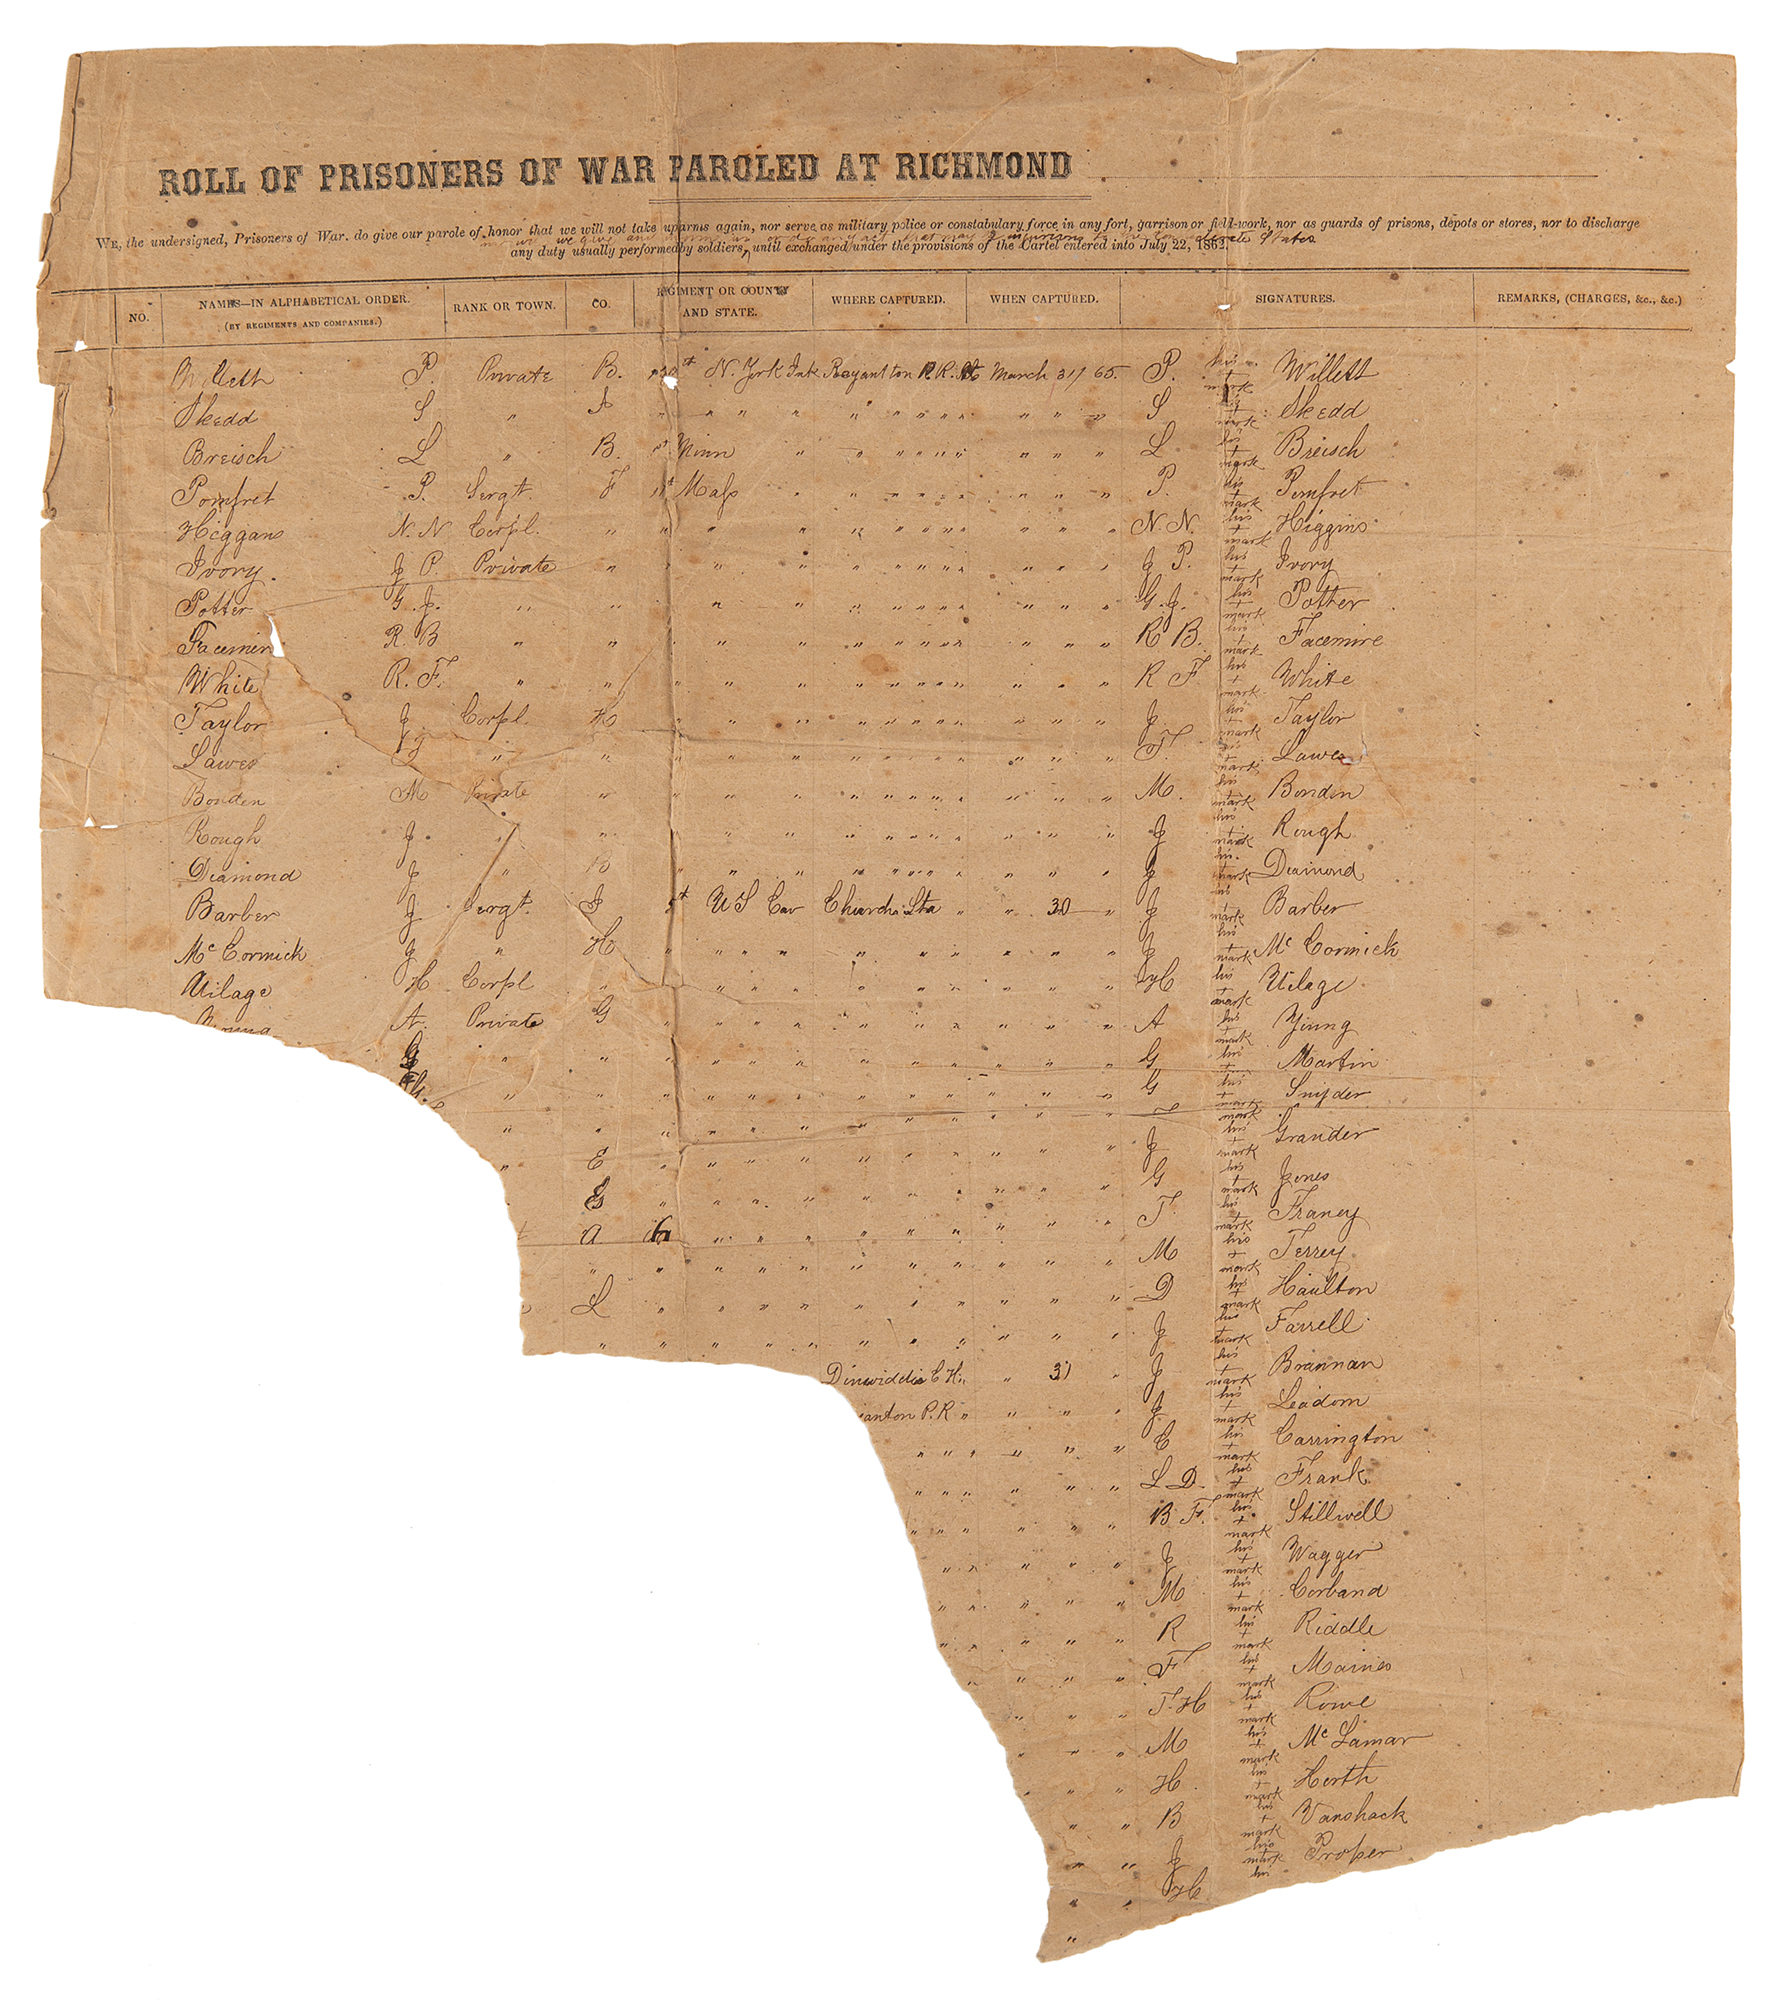 ROLL OF PRISONERS OF WAR PAROLED AT RICHMOND
WE, the undersigned, Prisoners of War. do give our parole of honor that we will not take up arms again, nor serve as military police or constabulary force in any fort, garrison or field-work, nor as guards of prisons, depots or stores, nor to discharge
any duty usually performed by soldiers, until exchanged under the provisions of the Cartel entered into July 22, 1862.
NO. NAMES—IN ALPHABETICAL ORDER. RANK OR TOWN. CO. REGIMENT OR COUNTY WHERE CAPTURED. WHEN CAPTURED. SIGNATURES. REMARKS, (CHARGES, &c., &c.)
(BY REGIMENTS AND COMPANIES.) AND STATE.
Willett P. Private B. N. York March 31/ 65. P. his mark Willett
Skedd S " A " " " " " " " " " " " " S his + mark Skedd
Breisch L " B. 1st Minn " " " " " " " " " L his + mark Breisch
Pomfret P. Sergt. F Mass " " " " " " " " " P. his + mark Pomfret
Higgans N. N Corpl. " " " " " " " " " " " " N. N. his + mark Higgins
Ivory. J P. Private " " " " " " " " " " " J P. his + mark Ivory
Potter G. J. " " " " " " " " " " " " G. J. his + mark Potter
Facemir R. B " " " " " " " " " " " " R B. his + mark Facemire
White R. F. " " " " " " " " " " " " " R F his + mark White
Taylor J Corpl. H " " " " " " " " " " " J his + mark Taylor
Lawes T " " " " " " " " " " " " " T. his + mark Lawes
Bonden M Private " " " " " " " " " " " " M. his + mark Bondin
Rough J. " " " " " " " " " " " " J his + mark Rough
Diamond J " B " " " " " " " " " " " J his + mark Diamond
Barber J Sergt. I 5t U S Cav " " 30 " J his + mark Barber
McCormick J " H " " " " " " " " " " J his + mark McCormick
Uilage H Corpl " " " " " " " " " " " H his + mark Uilage
A. Private G " " " " " " " " " " A his + mark Young
G " " " " " " " " " " " " G his + mark Martin
G. " " " " " " " " " " " " G his + mark Snyder
" " " " " " " " " " " " T
E " " " " " " " " " " J his + mark Grander
G " " " " " " " " " " G his + mark Jones
a 6 " " " " " " " " " " T his + mark Franey
" " " " " " " " " " " " M his + mark Terrey
L " " " " " " " " " " D his + mark Haulton
" " " " " " " " " " " J his + mark Farrell
Dinwiddie C H " " 31 " J his + mark Brannan
anton P. R " " " " J his + mark Leadom
" " " " " " C his + mark Carrington
" " " " " " L D. his + mark Frank
" " " " " " B F. his + mark Stillwell
" " " " " J his + mark Wagger
" " " " " M his + mark Corband
" " " " " R his + mark Riddle
" " " " F his + mark Maines
" " " " T. H his + mark Rowe
" " " M his + mark McLamar
" " " H. his + mark Herth
" " B his + mark Vanshack
" " J his mark Proper
" " H his
"